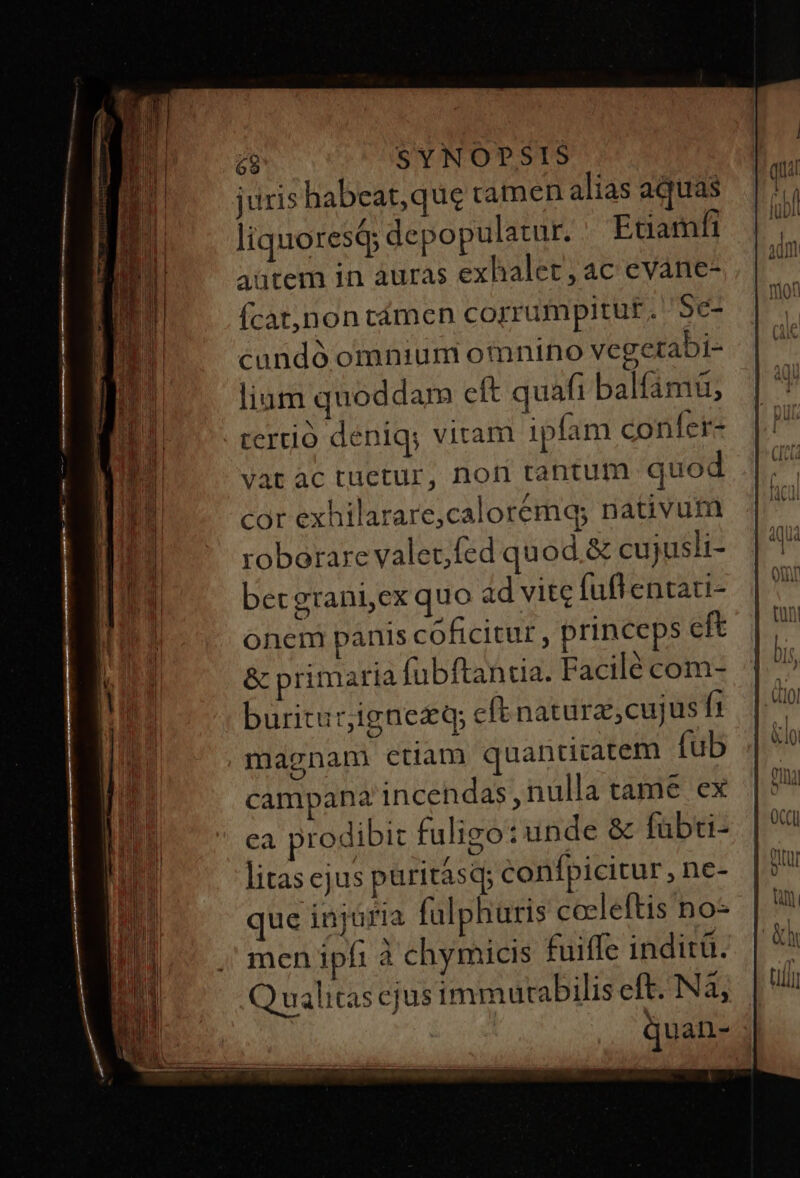 68 SYNOPSIS
juris habeat, que tamen alias aquas
liquoresq; depopulatur. Etiamſi
autem in auras exhalet, ac evane-
ſcat, non támen corrumpitur. Se-
cundò omnium omnino vegetabi-
lium quoddam eſt quaſi balſamū,
tertiò deniq; vitam ipſam conſer-
vat ac tuetur, non tantum quod
cor exhilarare, calorémq; nativum
roborare valet, ſed quod & cujusli-
bet grani, ex quo ad vitę ſuſtentati-
onem panis cōficitur, princeps eſt
& primaria ſubſtantia. Facilè com-
buritur, igneæq; eſt naturæ, cujus ſi
magnam etiam quantitatem ſub
campana incendas, nulla tamē ex
ea prodibit fuligo: unde & ſubti-
litas ejus puritásq; conſpicitur, ne-
que injuria ſulphuris cœleſtis no-
men ipſi à chymicis fuiſſe inditū.
Qualitas ejus immutabilis eſt. Nā,
quan-